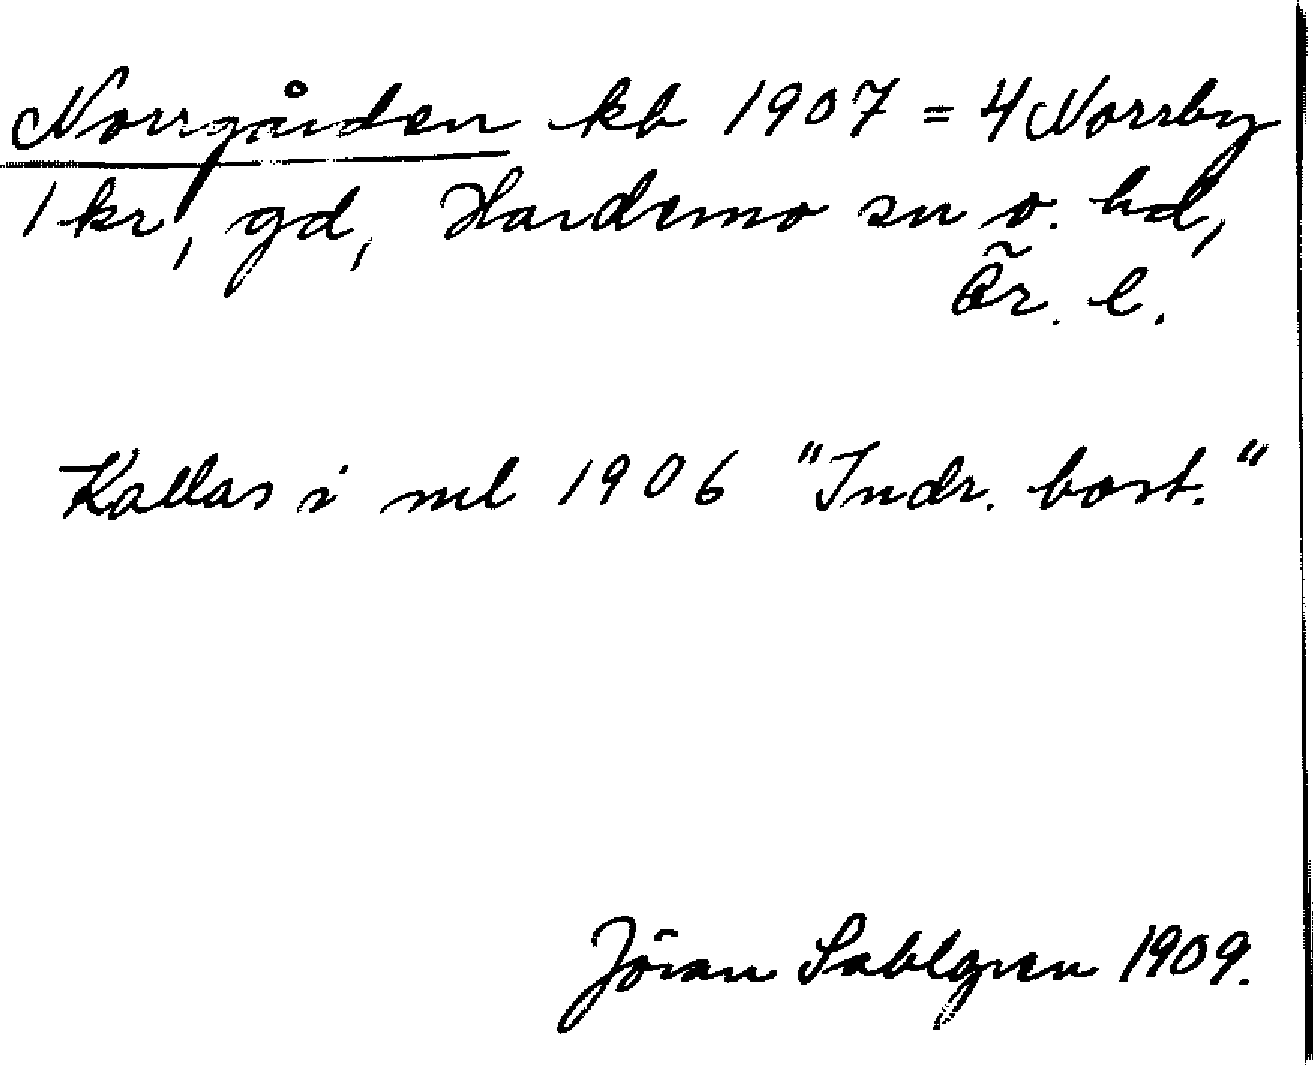 Norrgården kb 1907 = 4 Norrby
1 kr, gd, Hardemo sn o. hd,
Ör. l.
Kallas i ml 1906 "Indr. bost."
Jöran Sahlgren 1909.